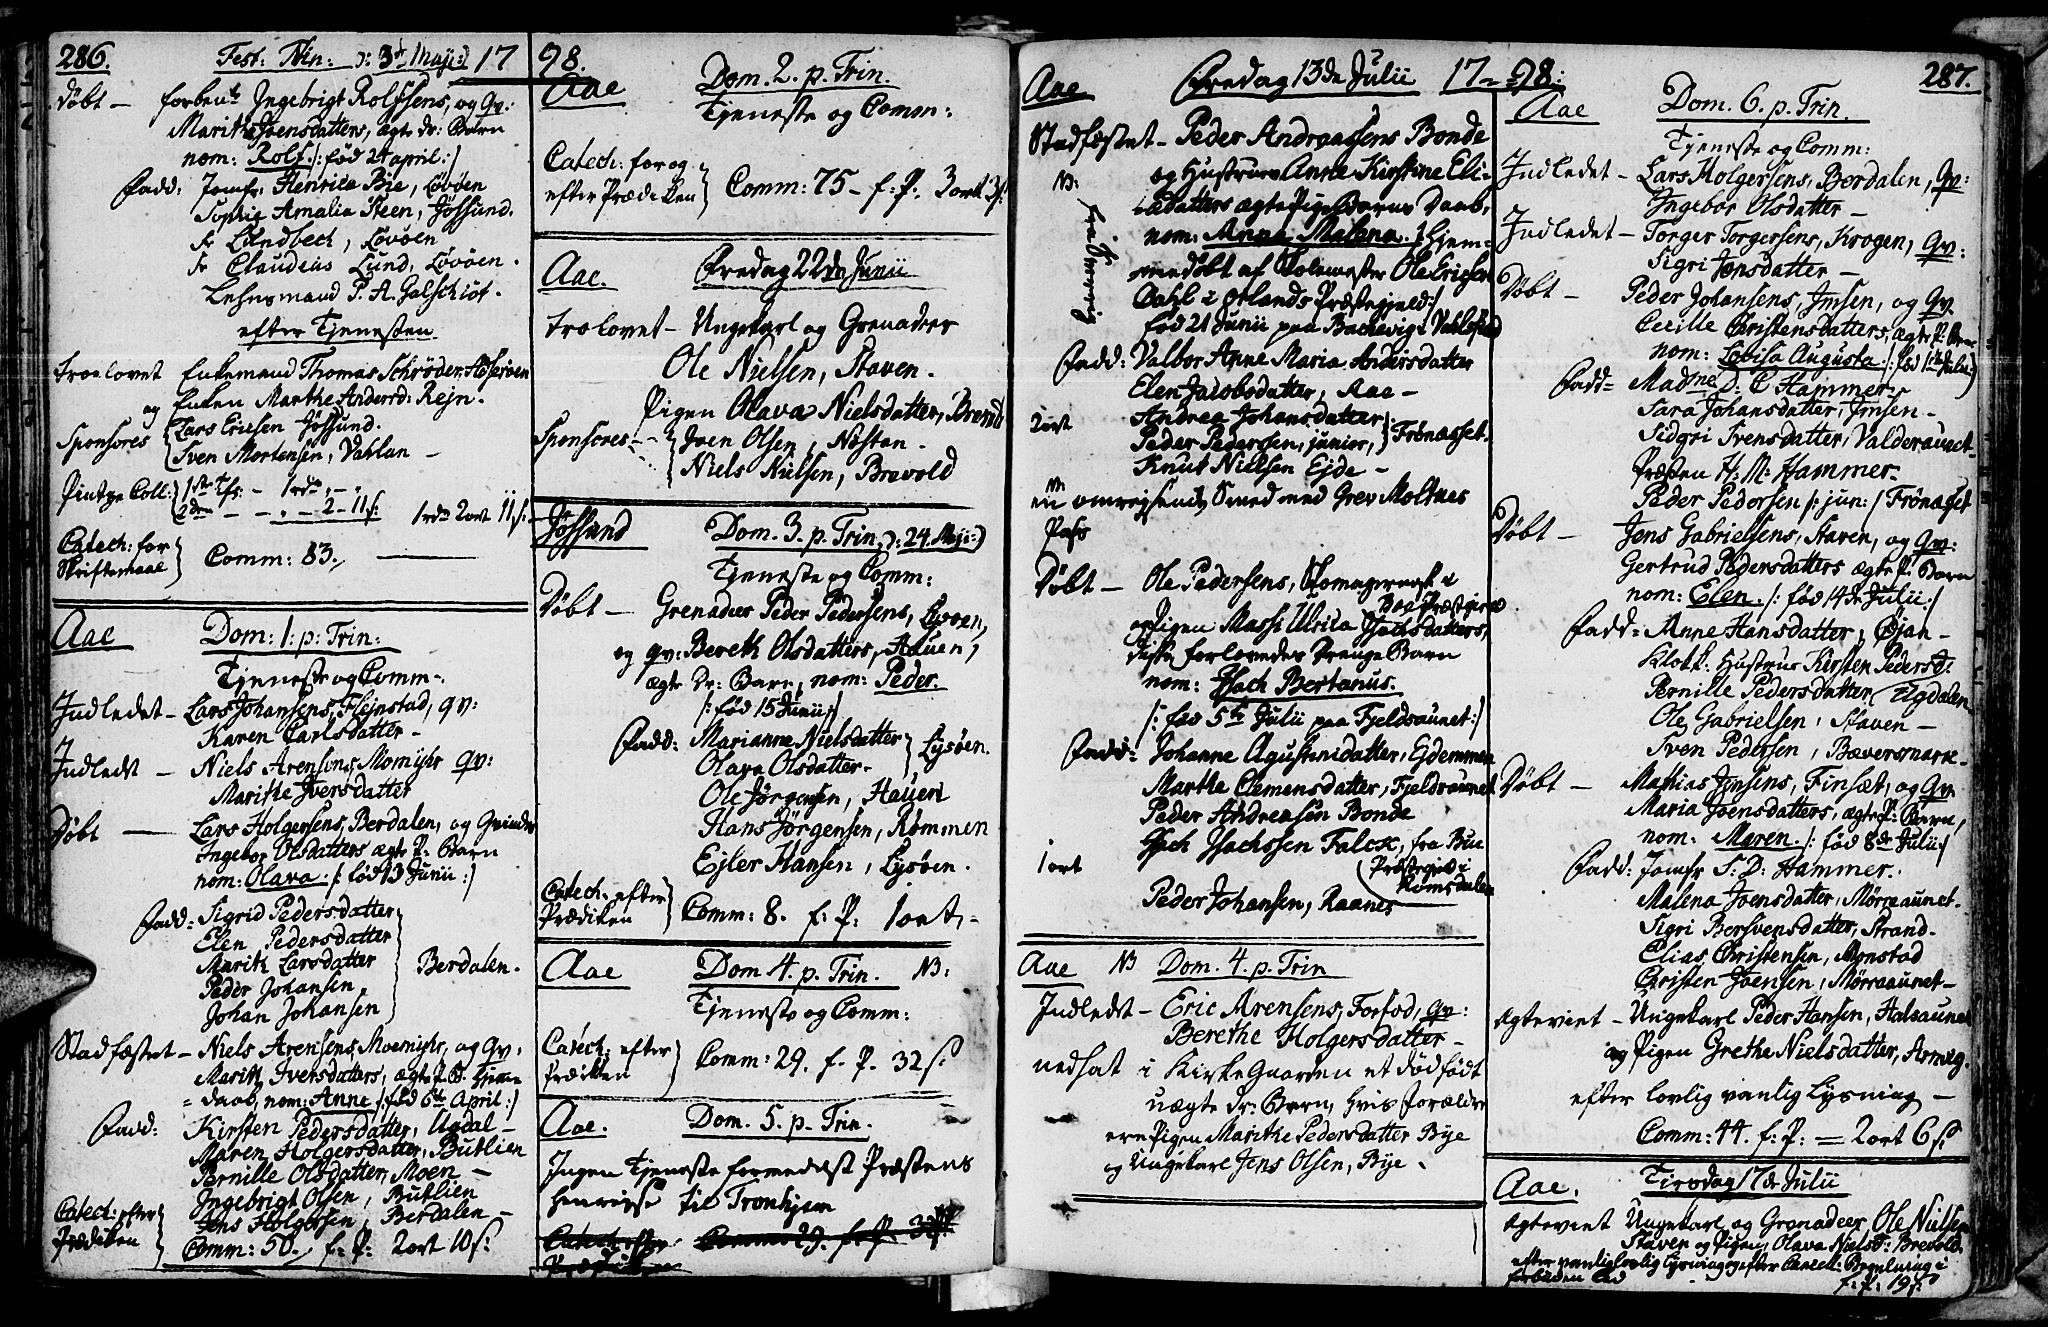 286.
Fest: Nin: ɔ: 3de Maji:) 17
døbt – forben: Ingebrigt Rolfsens, og Qv:
Marithe Joensdatters, ægte Dr: Barn
nom: Rolf. /: fød 24 april :/
Fadd: Jomfr: Henrica Bie, Løvøen
Sophie Amalia Steen, Jøssund.
Fr Lundbech, Løvøen
Fr Claudius Lund, Løvøen.
Lehnsmand P. A. Galschiøt.
efter Tjenesten
Troelovet Enkemand Thomas Schrøder
og Enken Marthe Andersd: Rejn.
Sponsores Lars Ericsen Jøssund.
Sven Mortensen, Vahlan –
Pintze Coll: 1ste Tfr: – 1 rdr „ – „
2den – – „ – 2 – 11 s: 1 rdr 2 ort 11 s:
Catech: for
Skriftemaal Comm: 83.
Aae Dom: 1: p: Trin:
Tjeneste og Comm–.
Indledet – Lars Johansens, Flejnstad, qv:
Karen Carlsdatter –
Indledt – Niels Arensens, Momyhr qv:
Marithe Iversdatter
Døbt – Lars Holgersens, Berdalen, og Qvindes
Ingebor Olsdatters ægte P: Barn
nom: Olava. /: fød 13 Junii :/
Fadd: Sigrid Pedersdatter
Elen Pedersdatter
Marith Larsdatter
Peder Johansen
Johan Johansen
Berdalen.
Stadfæstet – Niels Arensens, Moemyhr, og Qv:
Marith Iversdatters, ægte P. B. Hjemme
= daab, nom: Anne /: fød 6te April :/
Fadd: Kirsten Pedersdatter, Ugdal –
Maren Holgersdatter, Butlien
Pernille Olsdatter, Moen –
Ingebrigt Olsen, Butlien
Jens Holgersen, Berdalen –
Catech: efter
Prædiken Comm: 50. f: P: 2 ort 10 s:
98.
Aae Dom. 2. p. Trin.
Tjeneste og Comm:
Catech: for og
efter Prædiken Comm: 75 – f: P. 3 ort 3 s:
Aae. Fredag 22de Junii
Trolovet – Ungekarl og Grenadeer
Ole Nielsen, Staven.
Pigen Olava Nielsdatter,
Sponsores – Joen Olsen, Nøstan –
Niels Nielsen, Brevold
Jøssund Dom. 3. p. Trin. ɔ: 24. Maji:)
Tjeneste og Comm:
Døbt – Grenadeer Peder Pedersens, Lysøen,
og qv: Bereth Olsdatters, Hauen,
ægte Dr: Barn, nom: Peder.
/: fød 15 Junii :/
Fadd: Marianne Nielsdatter
Olava Olsdatter –
Lysøen.
Ole Jørgensen, Hauen
Hans Jørgensen, Rømmen
Ejler Hansen, Lysøen.
Catech: efter
Prædiken Comm: 8. f: P: 1 ort, –
Aae Dom. 4. p. Trin. NB:
Tjeneste og Comm:
Catech: efter
Prædiken Comm: 29. f. P. 32 s:
Aae. Dom. 5. p. Trin.
Ingen Tjeneste formedelst Præstens
henrejse til Tronhjem
Catech: efter Comm: 29. f. P. 32 s:
Prædiken
Aae Fredag 13de Julii 17 – 98: 287.
Stadfæstet – Peder Andreasens Bonde
og Hustrues Anne Kirstine Eli-
adatters ægte Pige Barns Daab,
nom: Anna Malena. /: hjem-
medøbt af Skolemester Ole Ericsen
Dahl i Ørlands Præstegield :/
fød 21 Junii paa Bachevig i
NB: fra
Fadd: Valbor Anne Maria Andersdatter
Elen Jacobsdatter, Aae –
2 ort Andrea Johansdatter
Peder Pedersen, junior,
Frønæsset.
Knut Nielsen Ejde –
en omrejsende Smed med Grev Moltkes
Pass
Døbt – Ole Pedersens, Skomagersvend i
Præstegield
og Pigen Massi Ulrica Isachsdatters,
disse forlovedes Drenge Barn
nom: Isach Bertanus.
/: fød 5te Julii paa Fjeldsaunet :/
Fadd: Johanne Agustinidatter, Ejdemmen
Marthe Clemensdatter, Fjeldsaunet
Peder Andreasen Bonde
1 ort Isach Isachssen Falck, fra Bue
Præstegield i
Romsdalen
Peder Johansen, Raanes
Aae NB Dom. 4. p. Trin
Indledet – Eric Arensens, Forsod, qv:
Berethe Holgersdatter –
nedsat i Kirke Gaarden et dødfødt
uægte Dr: Barn, hvis Forældre
ere Pigen Marithe Pedersdatter Bye
og Ungekarl Jens Olsen, Bye.
Aae Dom. 6. p. Trin.
Tjeneste og Comm:
Indledet – Lars Holgersens, Berdalen, Qv:
Ingebor Olsdatter –
Indledet – Torger Torgersens, Krogen, Qv:
Sigri Jonsdatter –
Døbt – Peder Johansens, Imsen, og Qv.
Cecille Christensdatters, ægte P: Barn
nom: Lovisa Augusta. /: fød 1ste Julii :/
Fadd= Madme D: C Hammer
Sara Johansdatter, Imsen –
Sidgri Svensdatter, Valderaunet –
Præsten H: M: Hammer –
Peder Pedersen /: jun: / Frønæsset
Døbt – Jens Gabrielsens, Staven, og Qv:
Gertrud Pedersdatters ægte P: Barn
nom: Elen. /: fød 14de Julii :/
Fadd= Anne Hansdatter, Øjan –
Klokk: Hustrue Kirsten Pedersd:
Pernille Pedersdatter, Ugdalen
Ole Gabrielsen, Staven –
Sven Pedersen, Bæversmark –
Døbt – Mathias Jensens, Finsæt, og Qv.
Maria Joensdatters, ægte P: Barn,
nom: Maren /: fød 8de Julii :/
Fadd: Jomfr S: D: Hammer.
Malena Joensdatter, Mørreaunet.
Sigri Borsvensdatter, Strand –
Elias Christensen, Monstad
Christen Joensen, Mørreaunet –
Ægteviet – Ungekarl Peder Hansen, Halsaunet
og Pigen Grethe Nielsdatter, Aarnæs.
efter lovlig vanlig Lysning –
Comm: 44. f: P: = 2 ort 6 s:
Aae. Tirsdag 17de Julii
Ægteviet Ungekarl og Grenadeer Ole Nielsen
Staven og Pigen Olava Nielsd: Brevold.
efter vanlig lovlig Lysning
f: P: 19 s: